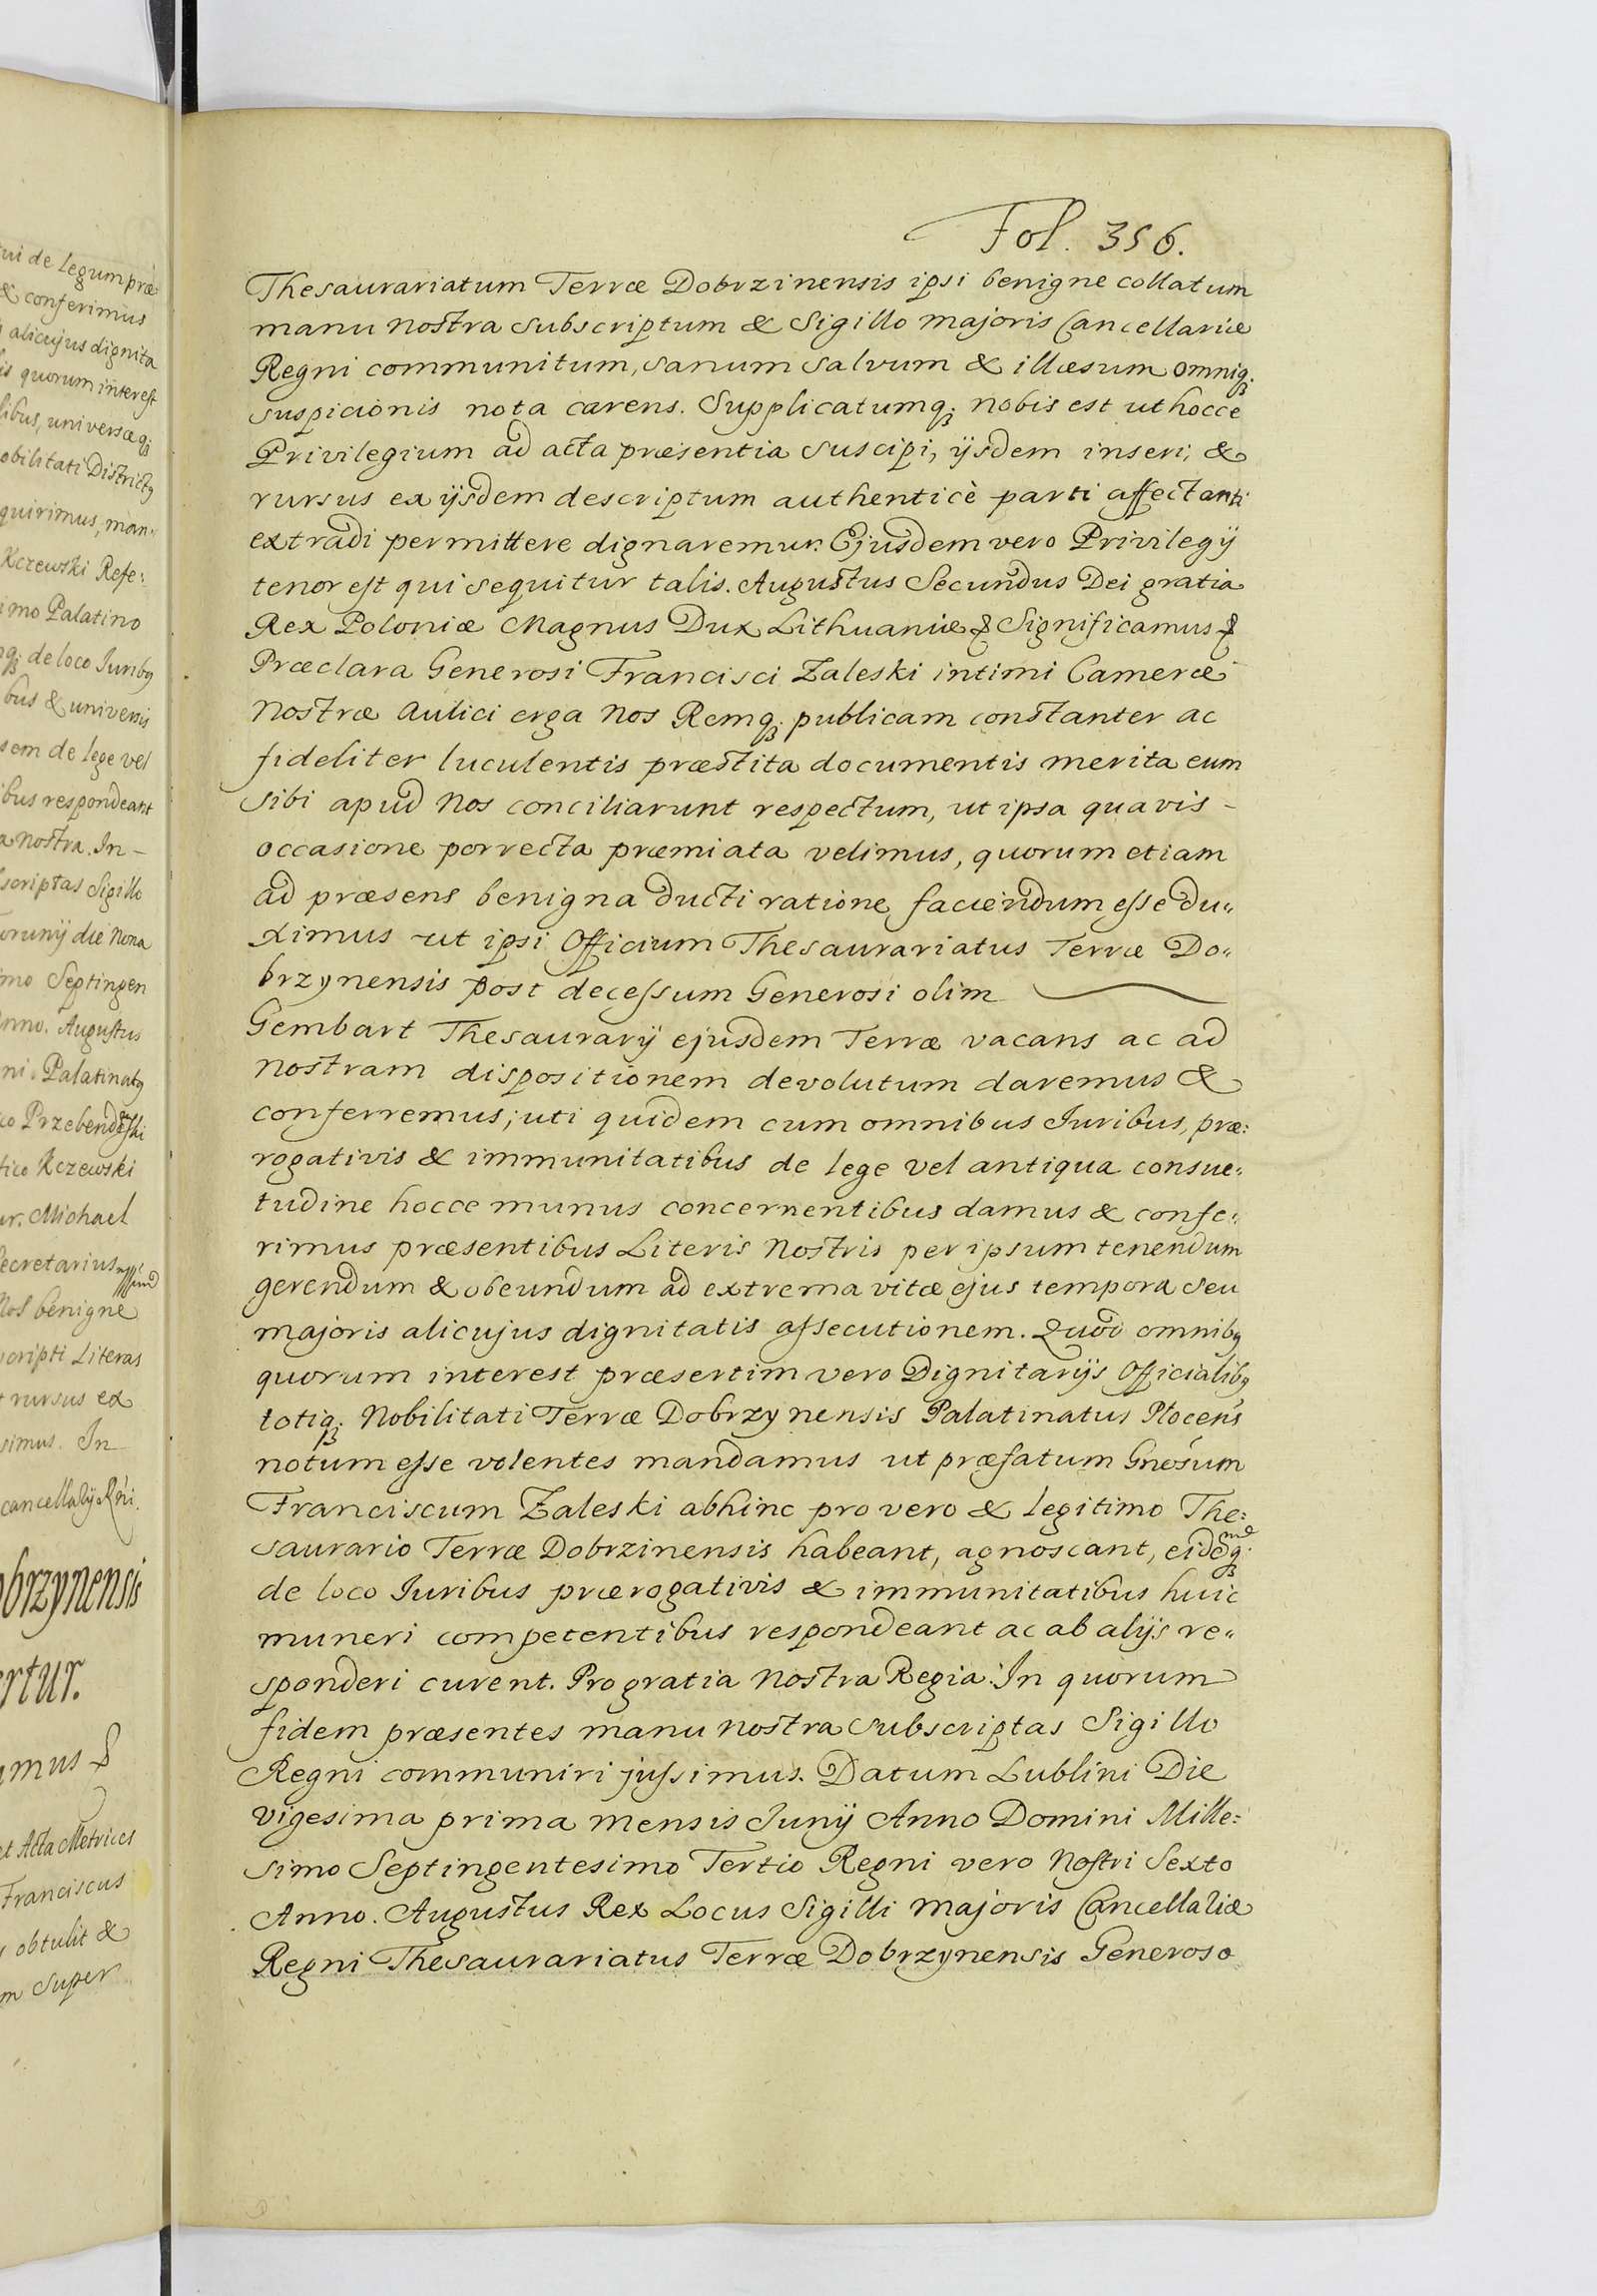 Fol. 356.
Thesaurariatum Terræ Dobrzinensis ipsi benigne collatum
manu nostra subscriptum & Sigillo majoris Cancellariæ
Regni communitum, sanum salvum & illæsum omniq;
suspicionis nota carens. Supplicatumq; nobis est ut hocce
Privilegium ad acta præsentia suscipi, ijsdem inseri, &
rursus ex ijsdem descriptum authenticè parti affectanti
extradi permittere dignaremur. Ejusdem vero Privilegij
tenor est qui sequitur talis. Augustus Secundus Dei gratia
Rex Poloniæ Magnus Dux Lithuaniæ & Significamus &
Præclara Generosi Francisci Zaleski intimi Cameræ
Nostræ Aulici erga Nos Remq; publicam constanter ac
fideliter luculentis præstita documentis merita eum
sibi apud Nos conciliarunt respectum, ut ipsa quavis -
occasione porrecta præmiata velimus, quorum etiam
ad præsens benigna ducti ratione faciendum esse du„
ximus ut ipsi Officium Thesaurariatus Terræ Do„
brzynensis post decessum Generosi olim
Gembart Thesaurarij ejusdem Terræ vacans ac ad
nostram dispositionem devolutum daremus &
conferremus; uti quidem cum omnibus Juribus, præ:
rogativis & immunitatibus de lege vel antiqua consue:
tudine hocce munus concernentibus damus & confe:
rimus præsentibus Literis Nostris per ipsum tenendum
gerendum & obeundum ad extrema vitæ ejus tempora seu
majoris alicujus dignitatis assecutionem. Quod omnibq
quorum interest præsertim vero Dignitarijs Officialibq
totiq; Nobilitati Terræ Dobrzynensis Palatinatus Plocens
notum esse volentes mandamus ut præfatum Gnosum
Franciscum Zaleski abhinc pro vero & legitimo The:
saurario Terræ Dobrzinensis habeant, agnoscant, eidemq;
de loco Juribus prærogativis & immunitatibus huic
muneri competentibus respondeant ac ab alijs re„
sponderi curent. Pro gratia Nostra Regia. In quorum
fidem præsentes manu nostra subscriptas Sigillo
Regni communiri jussimus. Datum Lublini Die
vigesima prima mensis Junij Anno Domini Mille:
simo Septingentesimo Tertio Regni vero Nostri Sexto
Anno. Augustus Rex Locus Sigilli majoris Cancellaliæ
Regni Thesaurariatus Terræ Dobrzynensis Generoso